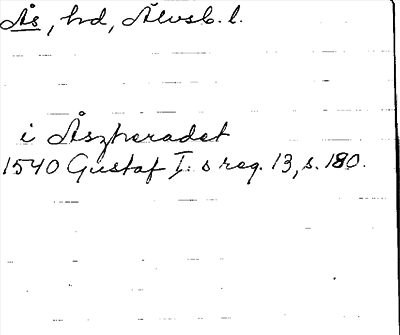 Ås, hd, Älvsb. l.
i Åszheradet
1540 Gustaf I: s reg. 13, s. 180.